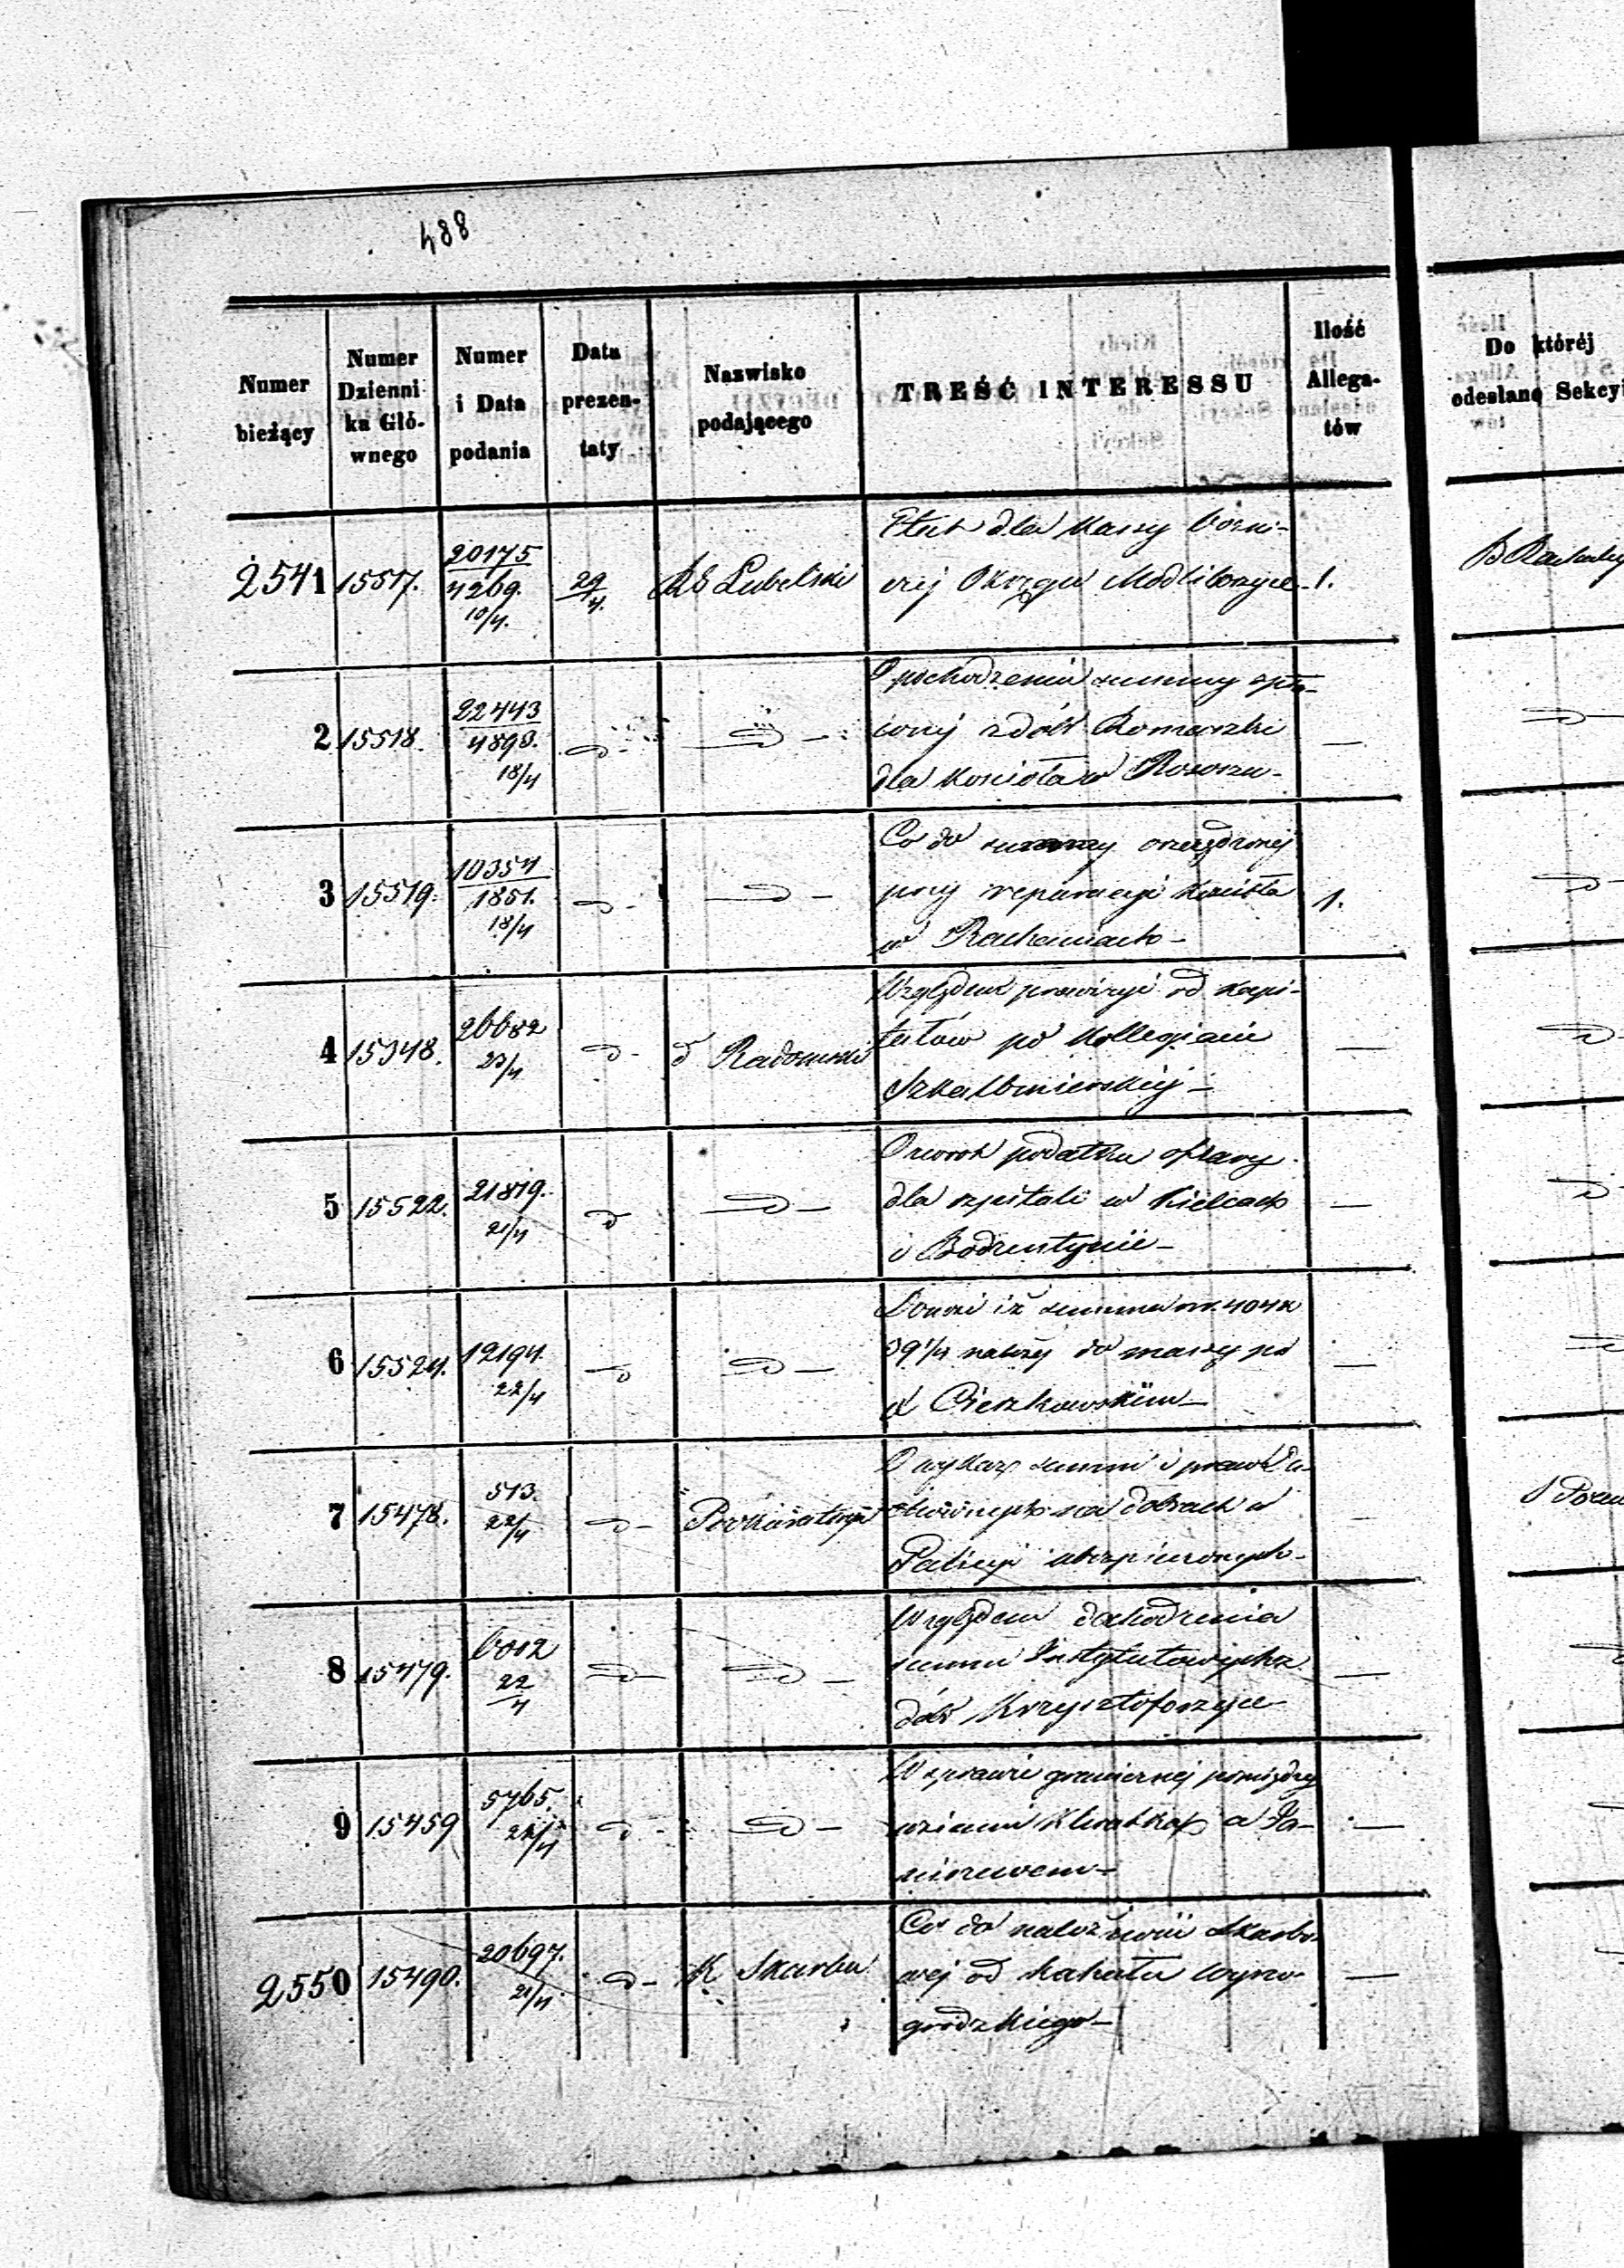 488
Numer bieżący
Numer Dzienni ka Głó- wnego
Numer i Data podania
Data prezen- taty
Nazwisko podającego
TREŚĆ INTERESSU
Ilość Allega- tów
Do któréj odesłano Sekcyi
2541 15517. 20175 / 4269. 10/4. 29/4. RG Lubelski
Etat dla Kassy bożni-
czej Okręgu Modliborzyce 1.
2 15518. 22443 / 4893. 18/4
O pochodzeniu summy spła-
conej z dóbr Romaszki
dla Kościoła w Rososzu-
3 15519. 10354 / 1851. 18/4
Co do summy oszczędzonej
przy reperacyi Kościoła
w Rachaniach- 1.
4 15348. 26682 23/4 d Radomski
Względem prowizyi od kapi-
tałów po Kollegiacie
Skalbmierskiej-
5 15522. 21879. 21/4
O zwrot podatku ofiary
dla szpitali w Kielcach
i Bodzentynie-
6 15524. 12194. 22/4
Donosi iż summa
39 1/4 należy do massy po
X Cieszkowskim-
7 15478. 513. 22/4 Prokuratorya
O wykaz summ i praw Du-
chownych na dobrach w
Galicyi ubezpieczonych-
8 15479. 6012 22/4
Względem dochodzenia
summ Instytutowych z
dóbr Krzysztoforzyce
9 15459 5765. 22/4
W sprawie granicznej pomiędzy
wsiami Klwatką a Ja-
niszewem-
2550 15490. 20697. 21/4 K Skarbu
Co do należności Skarbo-
wej od Kahału Wyszo-
grodzkiego-